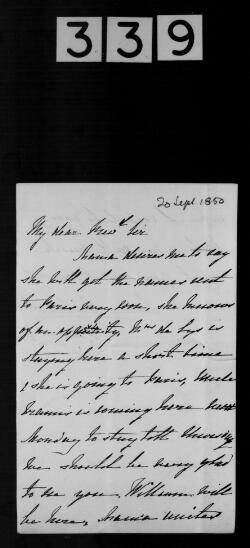 339
20 Sept 1850
My dear Revd. Sir
Mama desires me to say
she will get the names sent
to Paris very soon, she knows
of an opportunity, Mrs de Lys is
staying here a short time
& she is going to Paris, Uncle
Francis is coming here next
Monday to stay till Thursday
We should be very glad
to see you. William will
be here, Mama unites